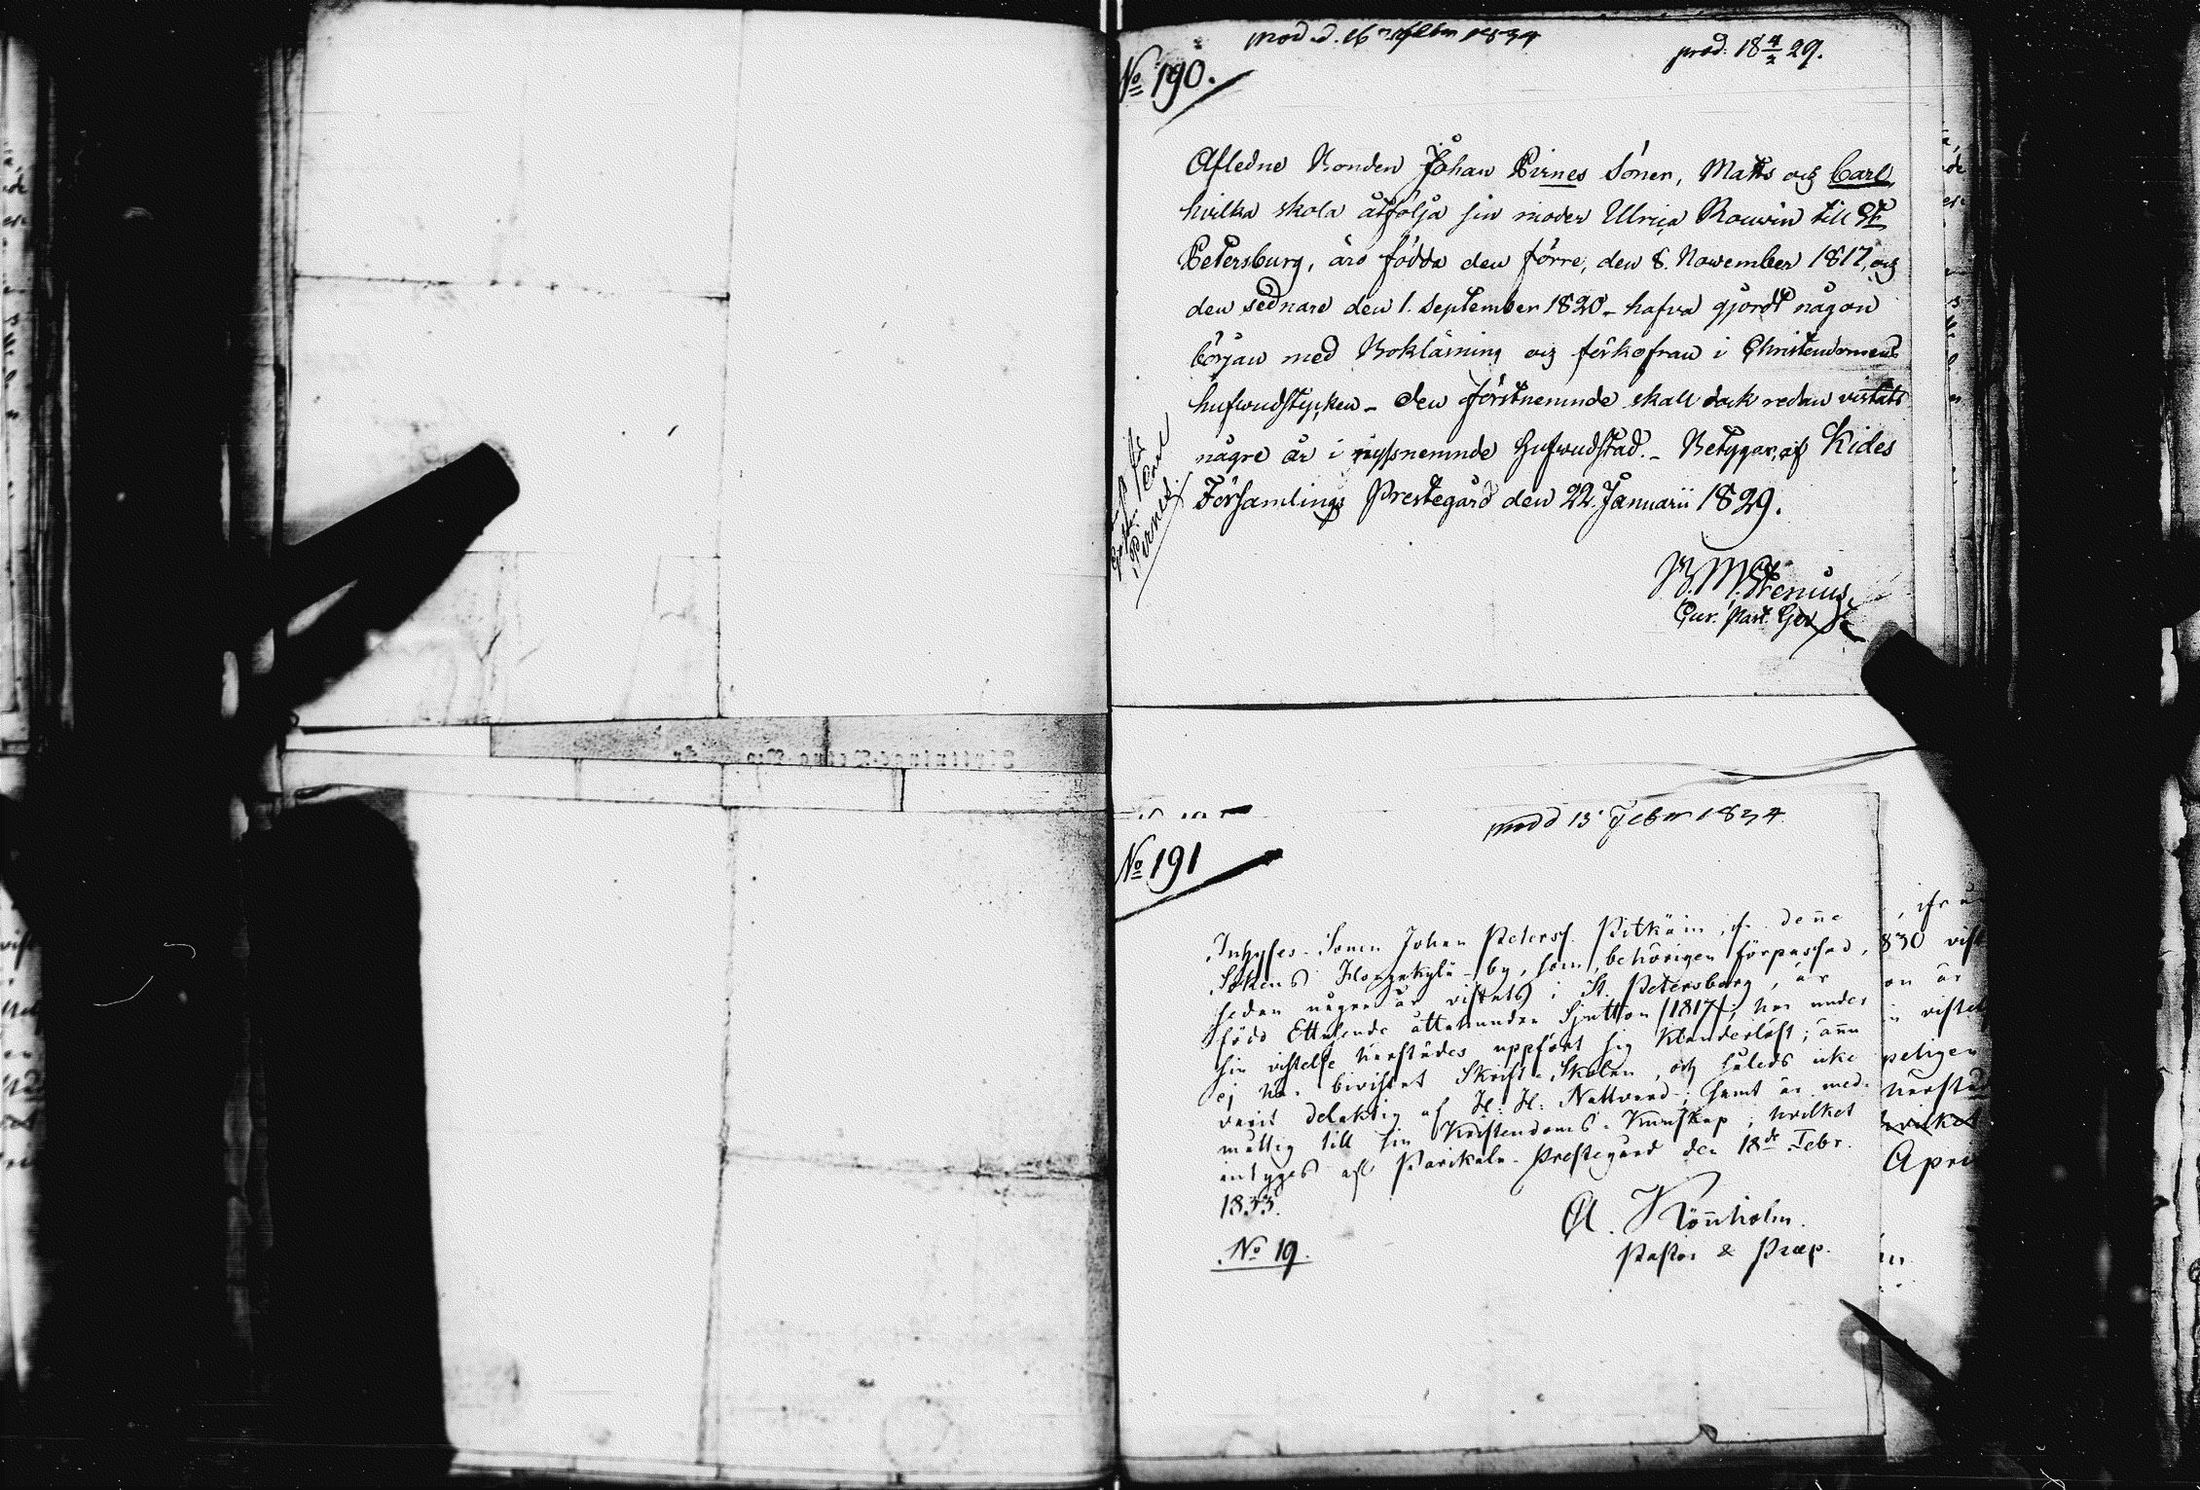 mod d. 16 Febr 1834
prod. 18 4/2 29.
No 190.
Afledne Bonden Johan Pirnes Söner, Matts och Carl
hvilka skola åtfölja sin moder Ulrica Rouvin till St
Petersburg, äro födda den förre, den 8. November 1817, och
den sednare den 1. September 1820 - hafva gjordt någon
början med Bokläsning och förkofran i Christendomens
hufvudstycken - den förstnemnde skall dock redan vistats
någre år i nyssnemnde Hufvudstad. - Betygar, af Kides
Församlings Prestegård den 22. Januarii 1829.
Stenius
Cur. Past.
för
Carl
Pirnes
mod d 13 Febr 1834
No 191
Inhyses-Sonen Johan Peterss. Pitkäin, ifr. denne
Sokens by, som, behörigen förpassad,
sedan några år vistats i St. Petersburg, är
född Ettusende åttahundra Sjutton /1817/; har under
sin vistelse härstädes uppfört sig klanderlöst; ännu
ej har bivistat Skrift-Skolan, och således icke
varit delaktig af H. H. Nattvard; samt är med-
måttig till sin Kristendoms-Kunskap; hvilket
intygas af Parikala-Prestegård den 18de Febr.
1833.
Rönnholm.
Pastor & Præp.
No 19.
830
on är
härstäd
hvilket
Apri